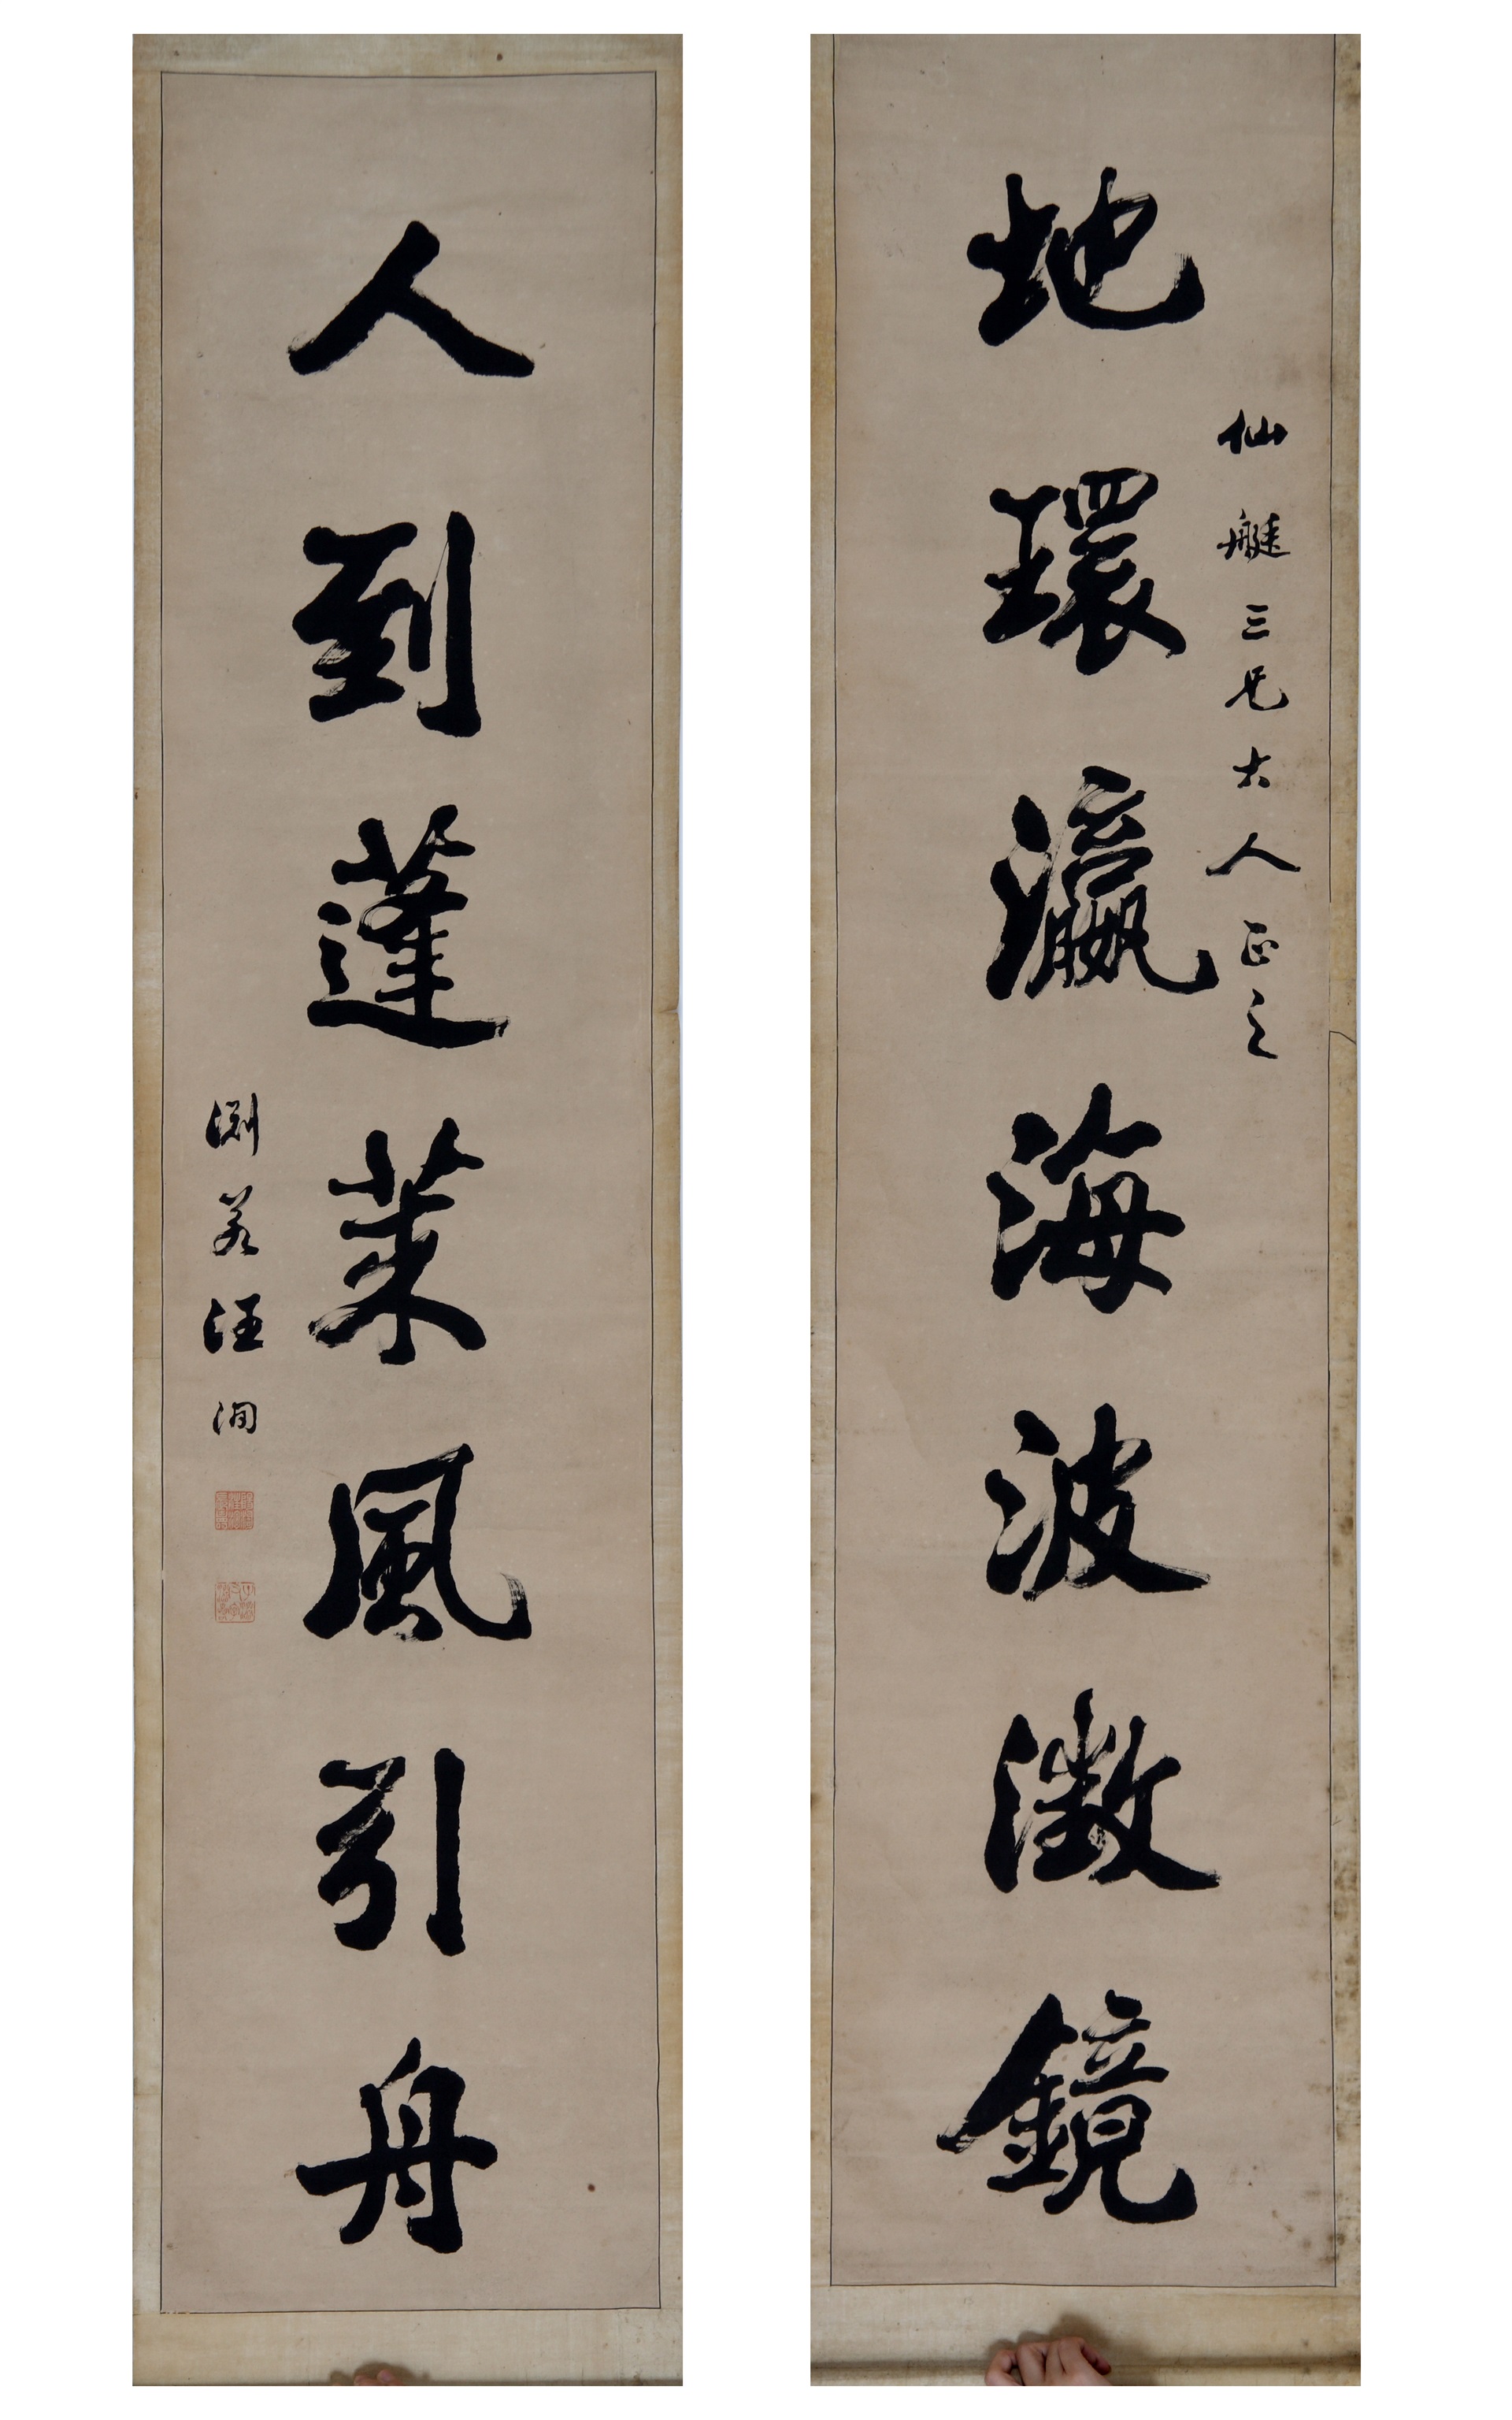 地環瀛海波澂鏡
仙艇三兄大人正之
人到蓬萊風引舟
淵若汪洵